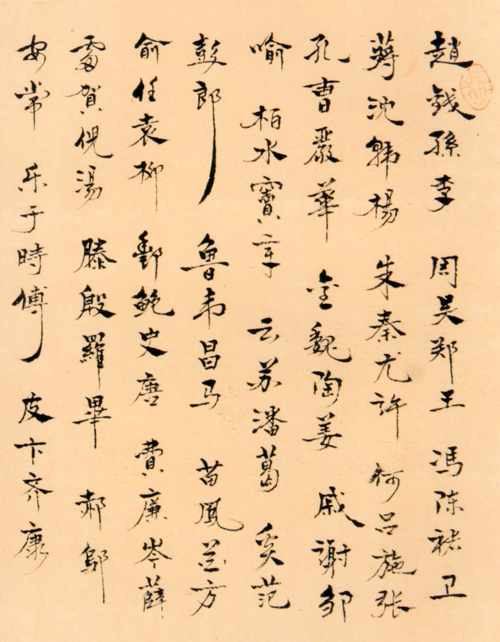 趙錢孫李 周吴郑王 冯陈褚卫
蒋沈韩楊 朱秦尤許 何吕施张
孔曹嚴華 金魏陶姜 戚謝邹
喻 柏水竇章 云苏潘葛 奚范
彭郎 鲁韦昌马 苗凤花方
俞任袁柳 酆鲍史唐 費廉岑薛
雷賀倪湯 滕殷羅畢 郝鄔
安常 乐于時傅 皮卞齐康